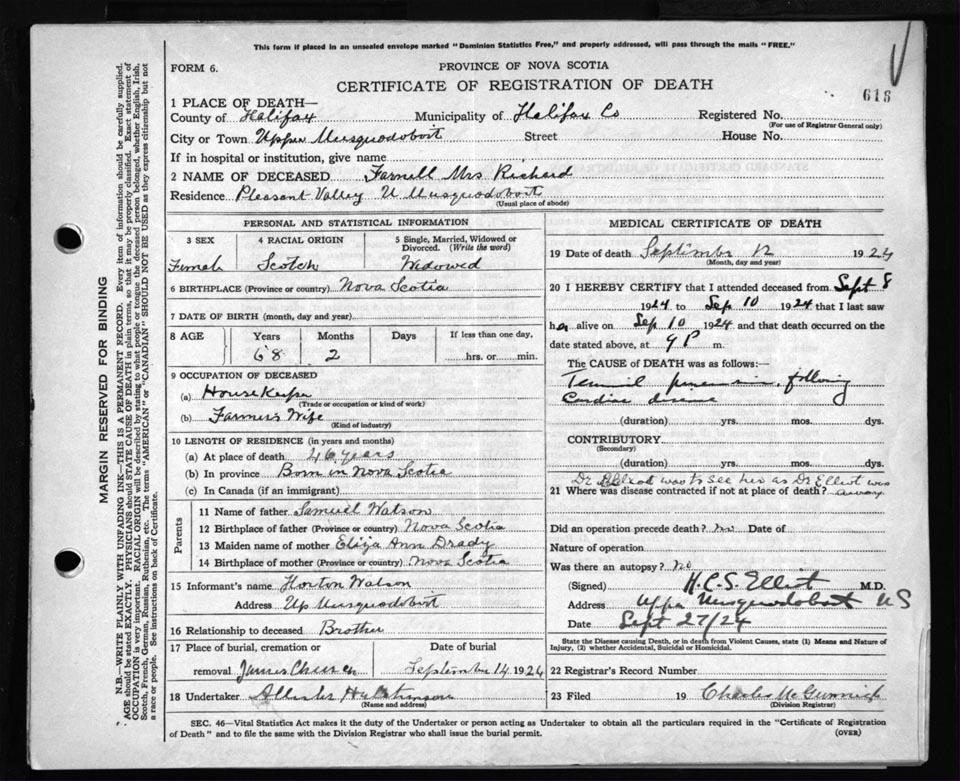 This form if placed in an unsealed envelope marked "Dominion Statistics Free," and properly addressed, will pass through the mails "FREE."
FORM 6.
PROVINCE OF NOVA SCOTIA
CERTIFICATE OF REGISTRATION OF DEATH
618
1 PLACE OF DEATH—
County of Halifax Municipality of Halifax Co Registered No.
(For use of Registrar General only)
City or Town Upper Musquodoboit Street House No.
If in hospital or institution, give name
2 NAME OF DECEASED Farnell Mrs Richard
Residence Pleasant Valley U. Musquodoboit
(Usual place of abode)
PERSONAL AND STATISTICAL INFORMATION
3 SEX 4 RACIAL ORIGIN 5 Single, Married, Widowed or
Divorced. (Write the word)
Female Scotch Widowed
6 BIRTHPLACE (Province or country) Nova Scotia
7 DATE OF BIRTH (month, day and year)
8 AGE Years Months Days If less than one day,
68 2 hrs. or min.
9 OCCUPATION OF DECEASED
(a) HouseKeeper
(Trade or occupation or kind of work)
(b) Farmers Wife
(Kind of industry)
10 LENGTH OF RESIDENCE (in years and months)
(a) At place of death 46 years
(b) In province Born in Nova Scotia
(c) In Canada (if an immigrant)
Parents
11 Name of father Samuel Watson
12 Birthplace of father (Province or country) Nova Scotia
13 Maiden name of mother Eliza Ann Drady
14 Birthplace of mother (Province or country) Nova Scotia
15 Informant's name Horton Watson
Address Up Musquodoboit
16 Relationship to deceased Brother
17 Place of burial, cremation or Date of burial
removal James Church September 14 1924
18 Undertaker Hutchinson
(Name and address)
MEDICAL CERTIFICATE OF DEATH
19 Date of death September 12 1924
(Month, day and year)
20 I HEREBY CERTIFY that I attended deceased from Sept 8
1924 to Sep 10 1924 that I last saw
her alive on Sep 10 1924 and that death occurred on the
date stated above, at 9 P m.
The CAUSE of DEATH was as follows:
following
Cardiac disease
(duration) yrs. mos. dys.
CONTRIBUTORY
(Secondary)
(duration) yrs. mos. dys.
Dr was to See her as Dr Elliot was
21 Where was disease contracted if not at place of death? away
Did an operation precede death? no Date of
Nature of operation
Was there an autopsy? no
(Signed) H.C.S. Elliot M.D.
Address Upper Musquodoboit NS
Date Sept 27/24
State the Disease causing Death, or in death from Violent Causes, state (1) Means and Nature of
Injury, (2) whether Accidental, Suicidal or Homicidal.
22 Registrar's Record Number
23 Filed 19 Charles
(Division Registrar)
SEC. 46—Vital Statistics Act makes it the duty of the Undertaker or person acting as Undertaker to obtain all the particulars required in the "Certificate of Registration
of Death" and to file the same with the Division Registrar who shall issue the burial permit.
(OVER)
MARGIN RESERVED FOR BINDING
N.B.—WRITE PLAINLY WITH UNFADING INK—THIS IS A PERMANENT RECORD. Every item of information should be carefully supplied.
AGE should be stated EXACTLY. PHYSICIANS should STATE CAUSE OF DEATH in plain terms, so that it may be properly classified. Exact statement of
OCCUPATION is very important. RACIAL ORIGIN will be described by stating to what people or tongue the deceased person belonged, whether English, Irish,
Scotch, French, German, Russian, Ruthenian, etc. The terms "AMERICAN" or "CANADIAN" SHOULD NOT BE USED as they express citizenship but not
a race or people. See instructions on back of Certificate.